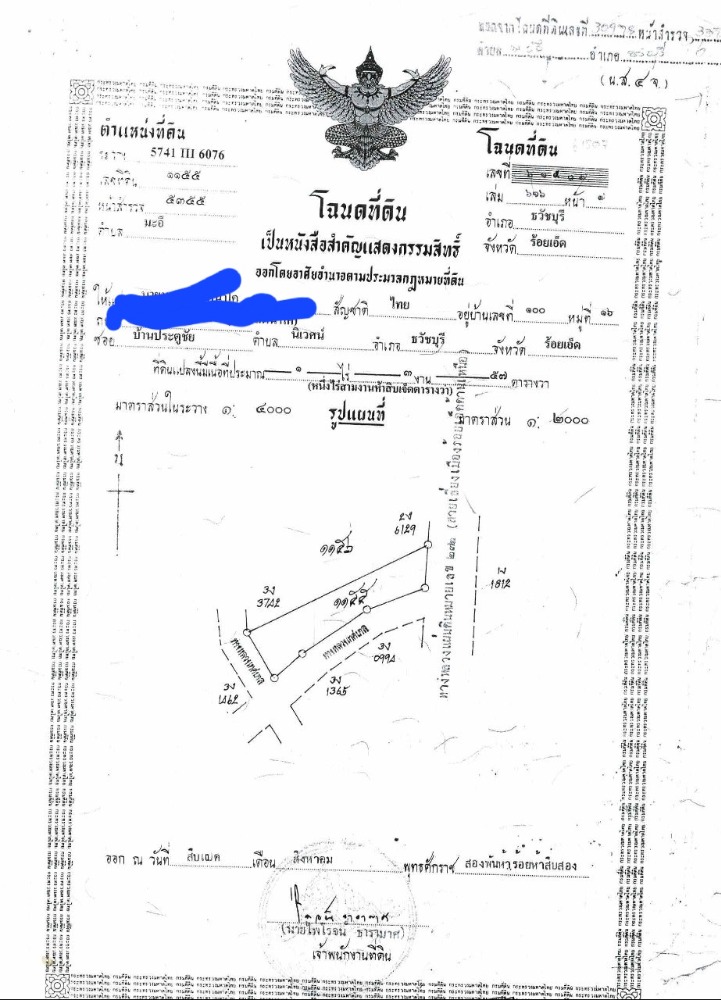 หน้าสำรวจ
อำเภอ
(น.ส.๔ จ.)
ตำแหน่งที่ดิน
ระวาง 5741 III 6076
เลขที่ดิน ๑๑๕๕
หน้าสำรวจ ๕๓๕๕
ตำบล มะอึ
โฉนดที่ดิน
เลขที่
เล่ม ๖๑๖ หน้า
อำเภอ ธวัชบุรี
จังหวัด ร้อยเอ็ด
โฉนดที่ดิน
เป็นหนังสือสำคัญแสดงกรรมสิทธิ์
ออกโดยอาศัยอำนาจตามประมวลกฎหมายที่ดิน
สัญชาติ ไทย อยู่บ้านเลขที่ ๑๐๐ หมู่ที่ ๑๖
ซอย บ้านประตูชัย ตำบล นิเวศน์ อำเภอ ธวัชบุรี จังหวัด ร้อยเอ็ด
ที่ดินแปลงนี้มีเนื้อที่ประมาณ ๑ ไร่ ๓ งาน ๕๗ ตารางวา
(หนึ่งไร่สามงานห้าสิบเจ็ดตารางวา)
มาตราส่วนในระวาง ๑: ๔๐๐๐ รูปแผนที่ มาตราส่วน ๑: ๒๐๐๐
น
๑๑๕๖
2ง
6129
3ง
3742
๑๑๕๕
1ง
1812
ทางหลวงเทศบาล
ทางหลวงเทศบาล
3ง
0994
3ง
1462
3ง
1365
ทางหลวงแผ่นดินหมายเลข ๒๓๒ (สายเลี่ยงเมืองร้อยเอ็ดด้านเหนือ)
ออก ณ วันที่ สิบเอ็ด เดือน สิงหาคม พุทธศักราช สองพันห้าร้อยห้าสิบสอง
(นายไพโรจน์ ธารามาศ)
เจ้าพนักงานที่ดิน